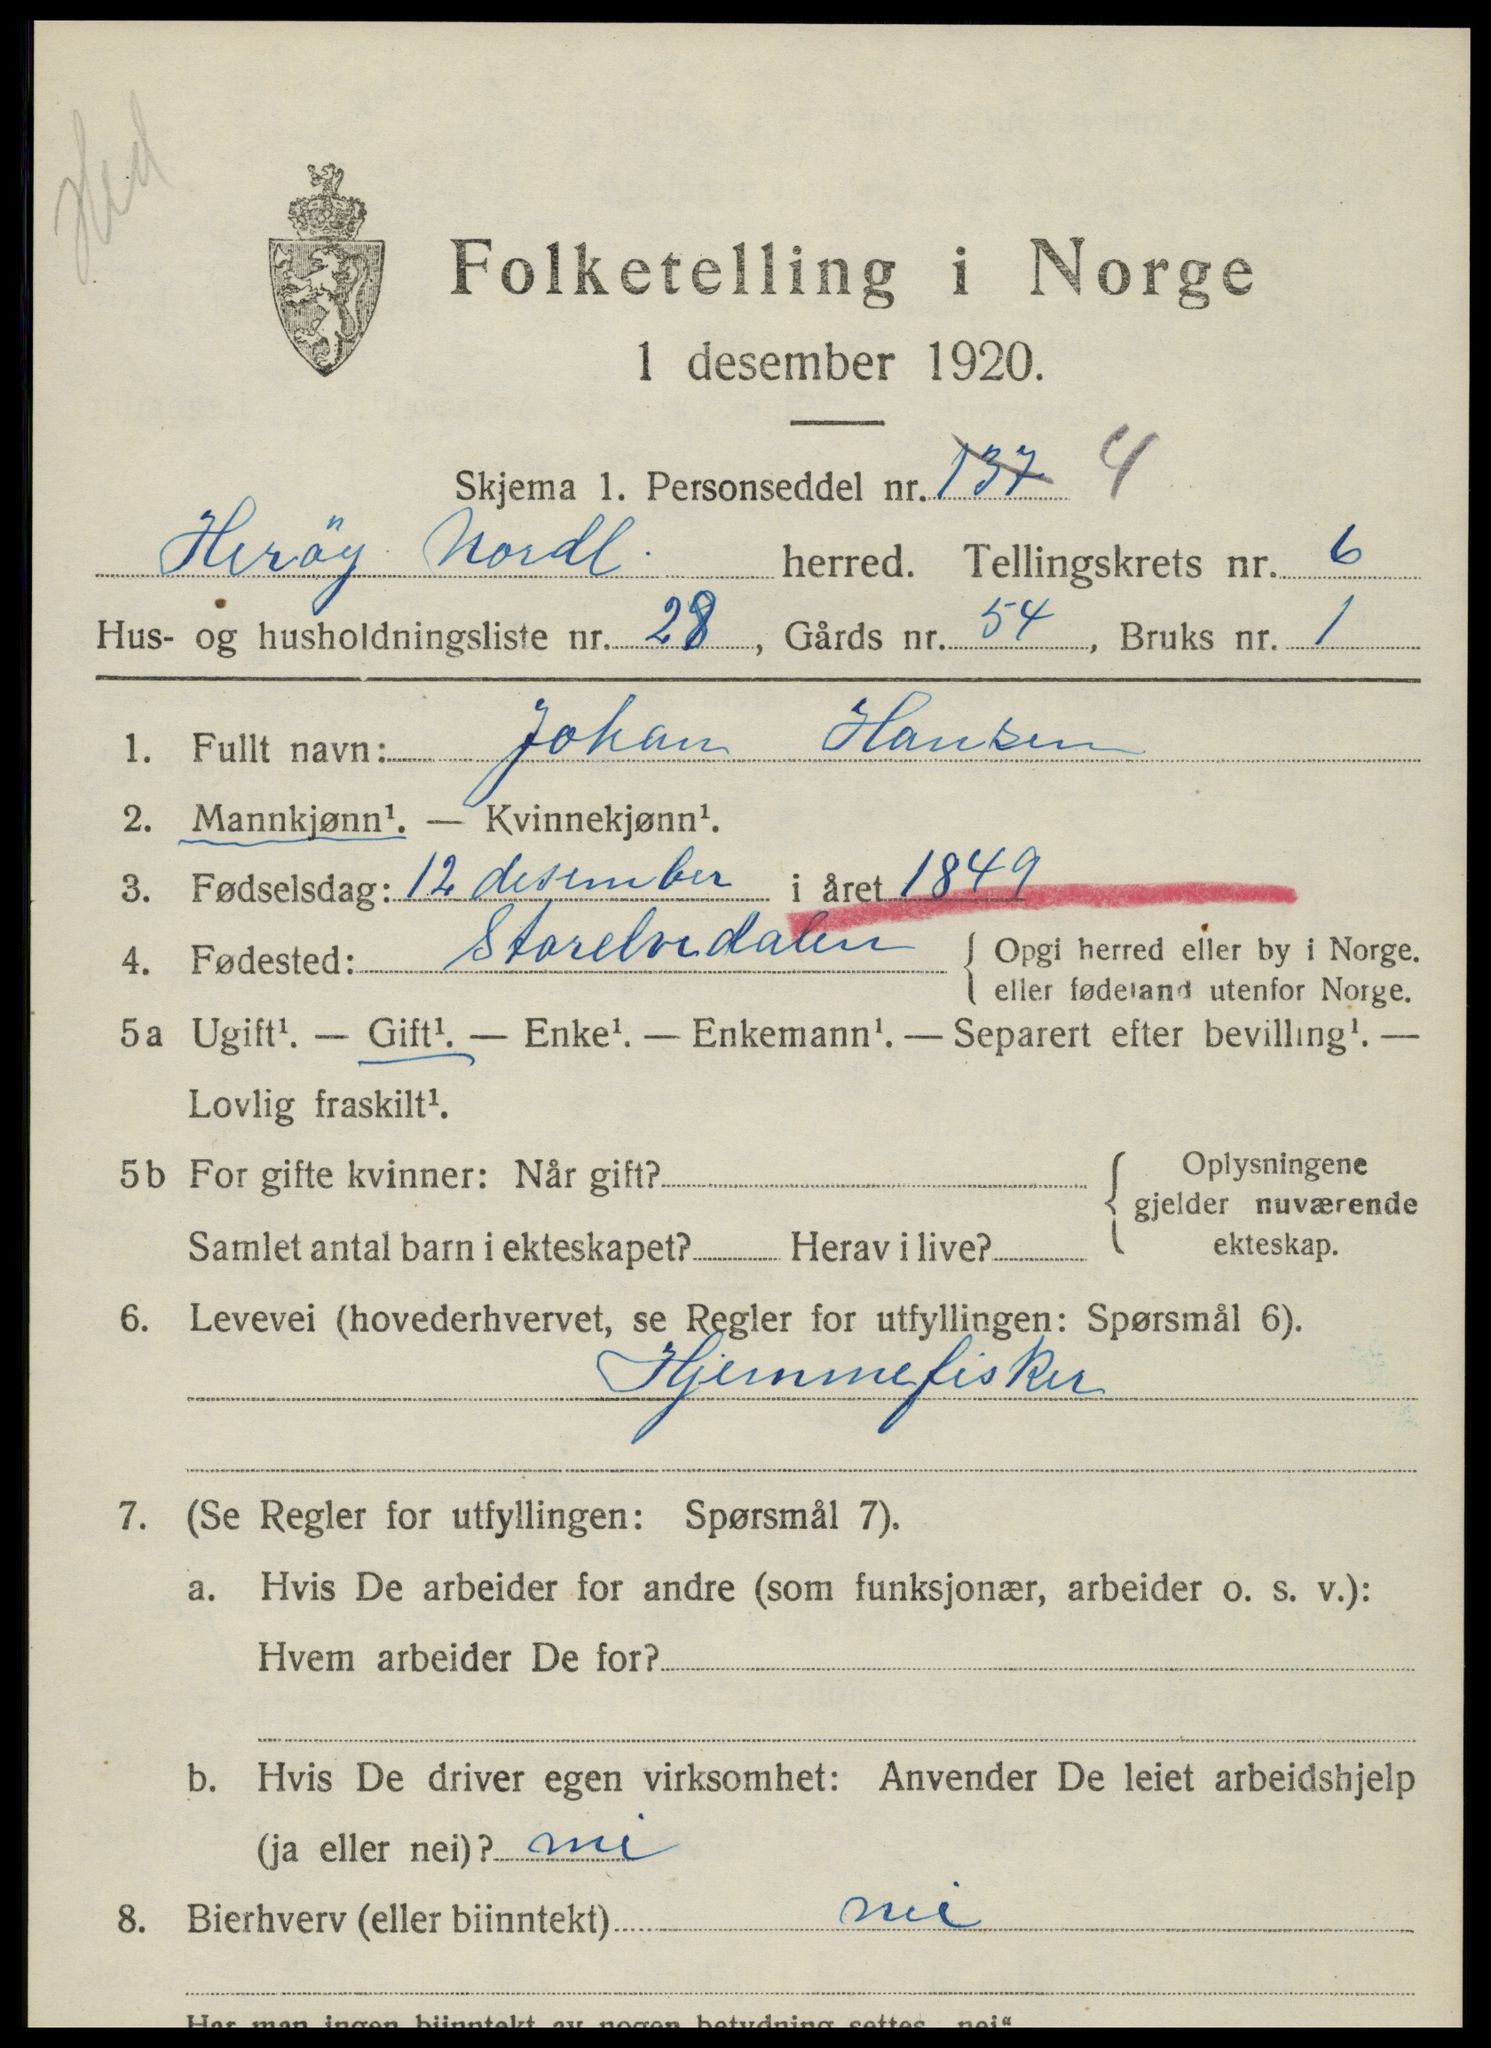 Hed
Folketelling i Norge
1 desember 1920.
Skjema 1. Personseddel nr. 137 4
Heröy Nordl. herred. Tellingskrets nr. 6
Hus- og husholdningsliste nr. 28, Gårds nr. 54, Bruks nr. 1
1. Fullt navn: Johan Hansen
2. Mannkjønn¹. — Kvinnekjønn¹.
3. Fødselsdag: 12 desember i året 1849
4. Fødested: Storelvedalen { Opgi herred eller by i Norge.
eller fødeland utenfor Norge.
5a Ugift¹. — Gift¹. — Enke¹. — Enkemann¹. — Separert efter bevilling¹. —
Lovlig fraskilt¹.
5b For gifte kvinner: Når gift? { Oplysningene
gjelder nuværende
Samlet antal barn i ekteskapet? Herav i live? ekteskap.
6. Levevei (hovederhvervet, se Regler for utfyllingen: Spørsmål 6).
Hjemmefisker
7. (Se Regler for utfyllingen: Spørsmål 7).
a. Hvis De arbeider for andre (som funksjonær, arbeider o. s. v.):
Hvem arbeider De for?
b. Hvis De driver egen virksomhet: Anvender De leiet arbeidshjelp
(ja eller nei)? nei
8. Bierhverv (eller biinntekt) nei
Har man ingen biinntekt av nogen betydning settes „nei“